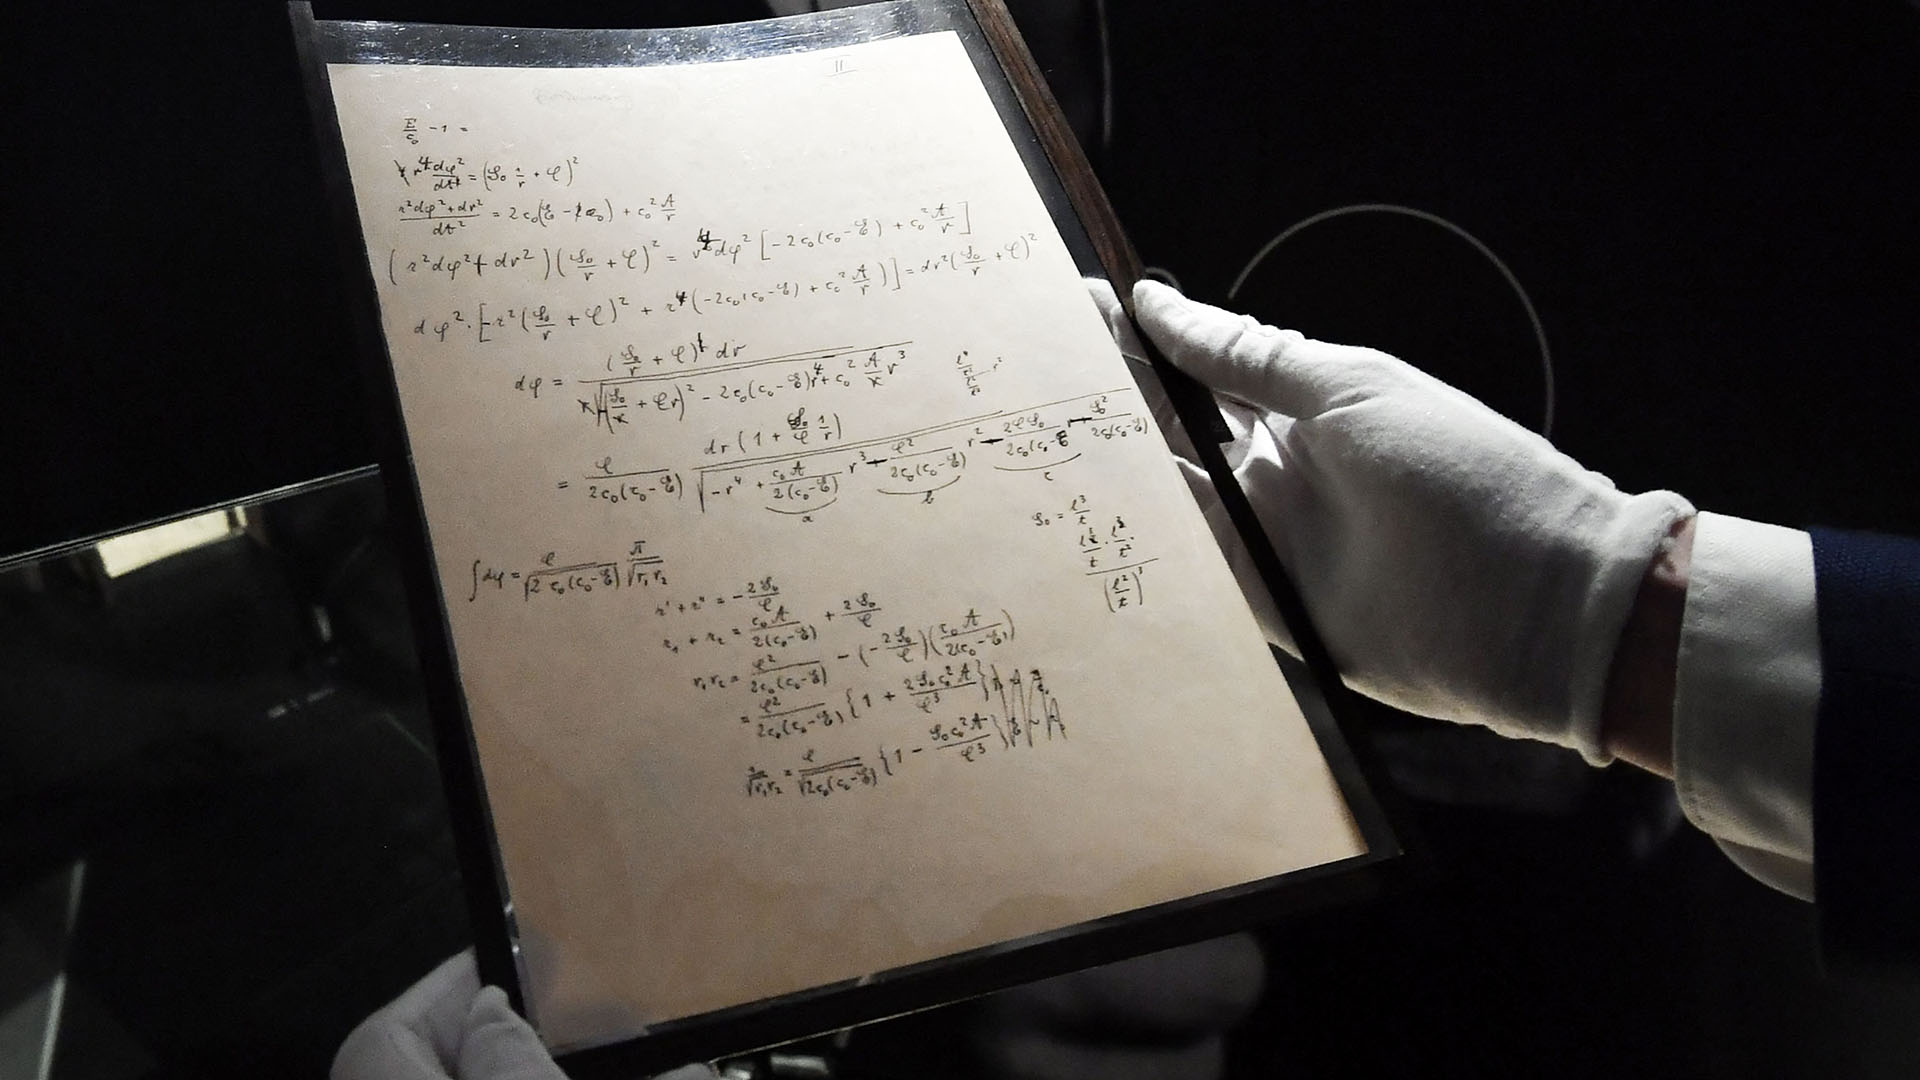 II
E/c₀ - 1 =
r⁴ dφ²/dt² = (S₀ 1/r + φ)²
(r²dφ² + dr²)/dt² = 2c₀(E - c₀) + c₀² A/r
(r²dφ² + dr²)(S₀/r + φ)² = r⁴dφ²[-2c₀(c₀-E) + c₀² A/r]
dφ²·[-r²(S₀/r + φ)² + r⁴(-2c₀(c₀-E) + c₀² A/r)] = dr²(S₀/r + φ)²
dφ = (S₀/r + φ) dr / √(-(S₀ + φr)² - 2c₀(c₀-E)r⁴ + c₀² A r³)
= φ/2c₀(c₀-E) dr(1 + S₀/φ 1/r) / √(-r⁴ + c₀A/2(c₀-E) r³ - φ²/2c₀(c₀-E) r² - 2φS₀/2c₀(c₀-E) r - S₀²/2c₀(c₀-E))
a b c
S₀ = l³/t
∫dφ = φ/√2c₀(c₀-E) π/√r₁r₂
(l²/t)³
r' + r'' = -2S₀/φ
r₁ + r₂ = c₀A/2(c₀-E) + 2S₀/φ
r₁r₂ = φ²/2c₀(c₀-E) - (-2S₀/φ)(c₀A/2(c₀-E))
= φ²/2c₀(c₀-E) {1 + 2S₀c₀²A/φ³}
1/√r₁r₂ = φ/√2c₀(c₀-E) {1 - S₀c₀²A/φ³}